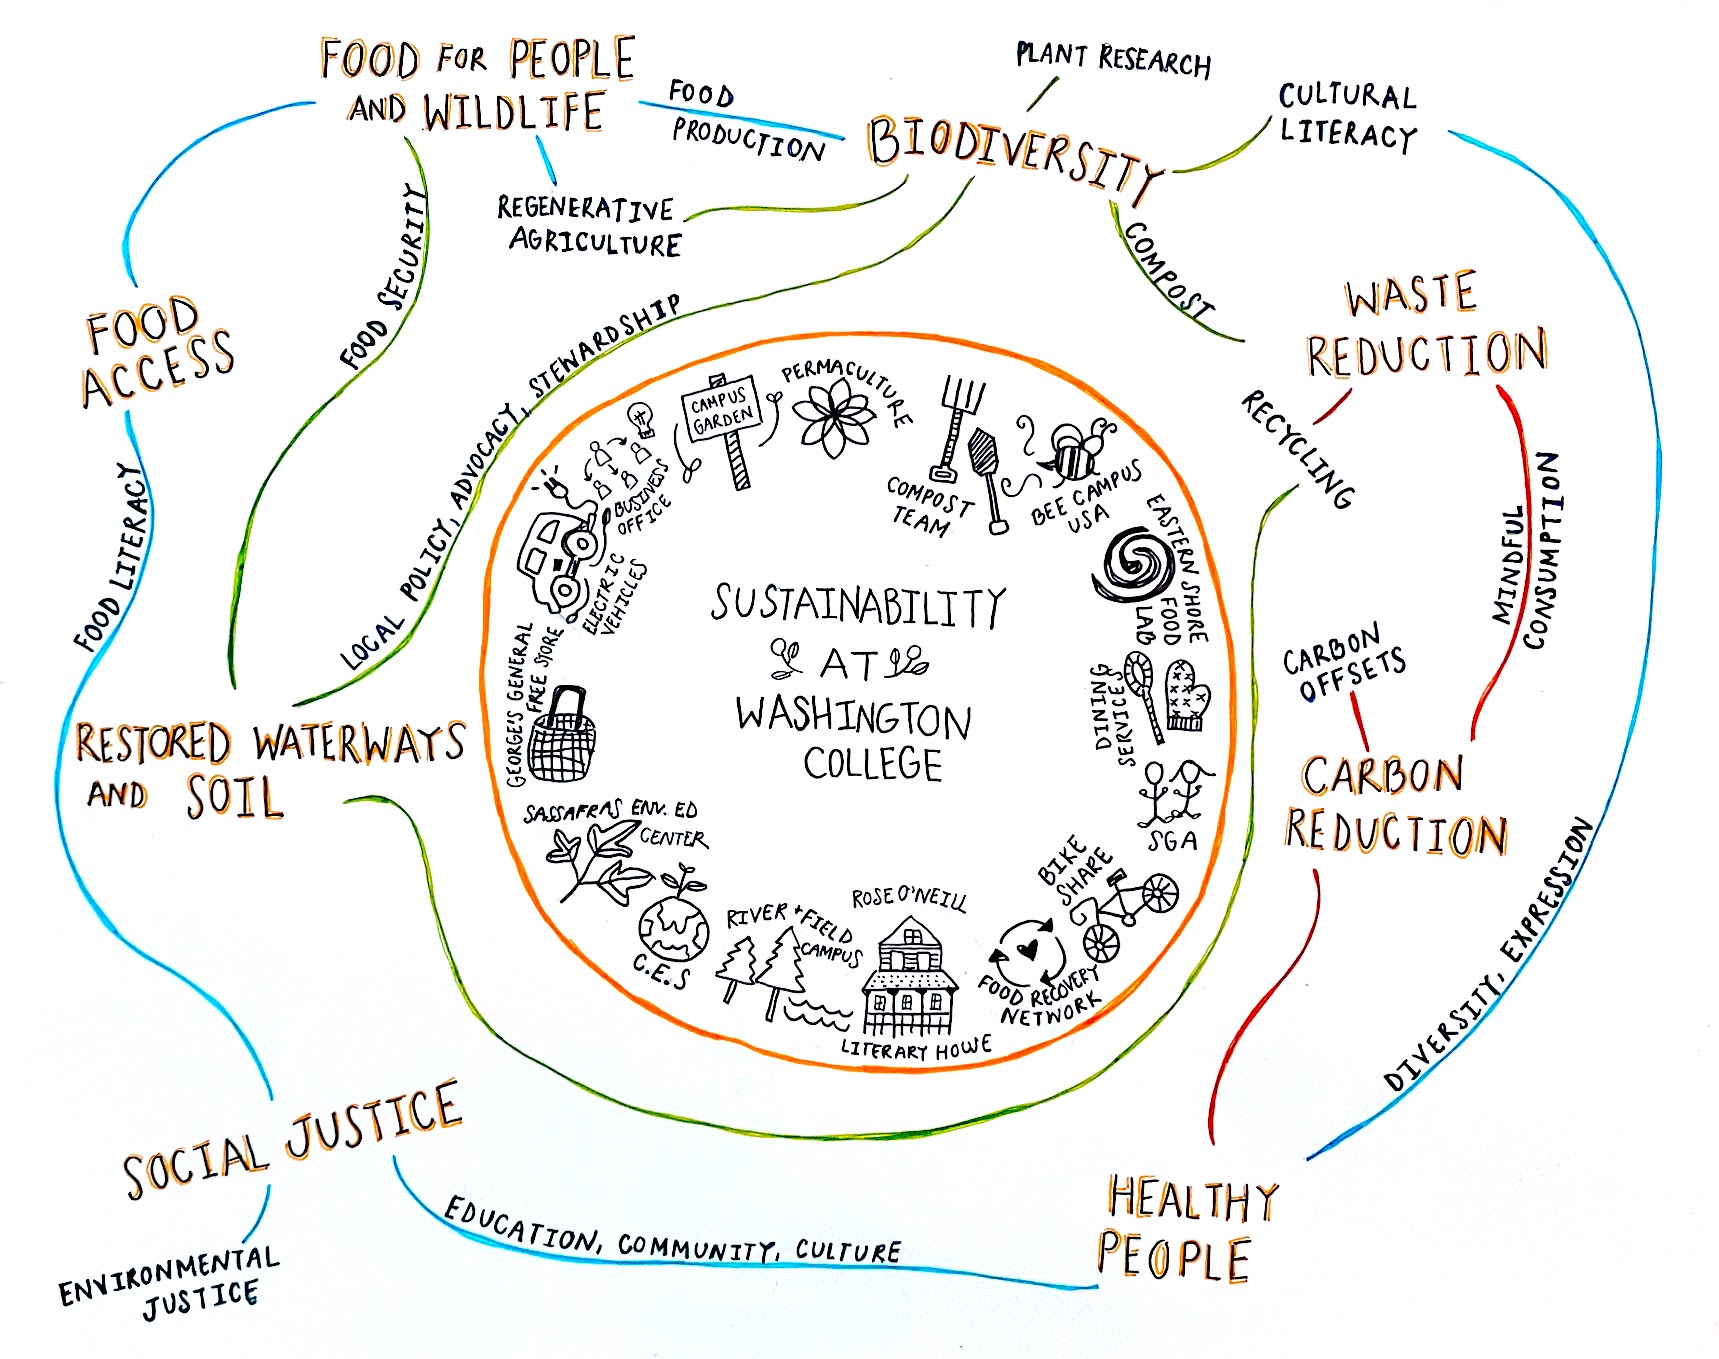 FOOD FOR PEOPLE
AND WILDLIFE
FOOD
PRODUCTION
BIODIVERSITY
PLANT RESEARCH
CULTURAL
LITERACY
REGENERATIVE
AGRICULTURE
FOOD SECURITY
LOCAL POLICY, ADVOCACY, STEWARDSHIP
COMPOST
FOOD
ACCESS
WASTE
REDUCTION
RECYCLING
MINDFUL
CONSUMPTION
FOOD LITERACY
CARBON
OFFSETS
CARBON
REDUCTION
RESTORED WATERWAYS
AND SOIL
DIVERSITY, EXPRESSION
SOCIAL JUSTICE
ENVIRONMENTAL
JUSTICE
EDUCATION, COMMUNITY, CULTURE
HEALTHY
PEOPLE
SUSTAINABILITY
AT
WASHINGTON
COLLEGE
CAMPUS
GARDEN
PERMACULTURE
COMPOST
TEAM
BEE CAMPUS
USA
EASTERN SHORE
FOOD
LAB
DINING
SERVICES
SGA
BIKE
SHARE
FOOD RECOVERY
NETWORK
ROSE O'NEILL
LITERARY HOUSE
RIVER + FIELD
CAMPUS
C.E.S
SASSAFRAS ENV. ED
CENTER
GEORGE'S GENERAL
FREE STORE
ELECTRIC
VEHICLES
BUSINESS
OFFICE